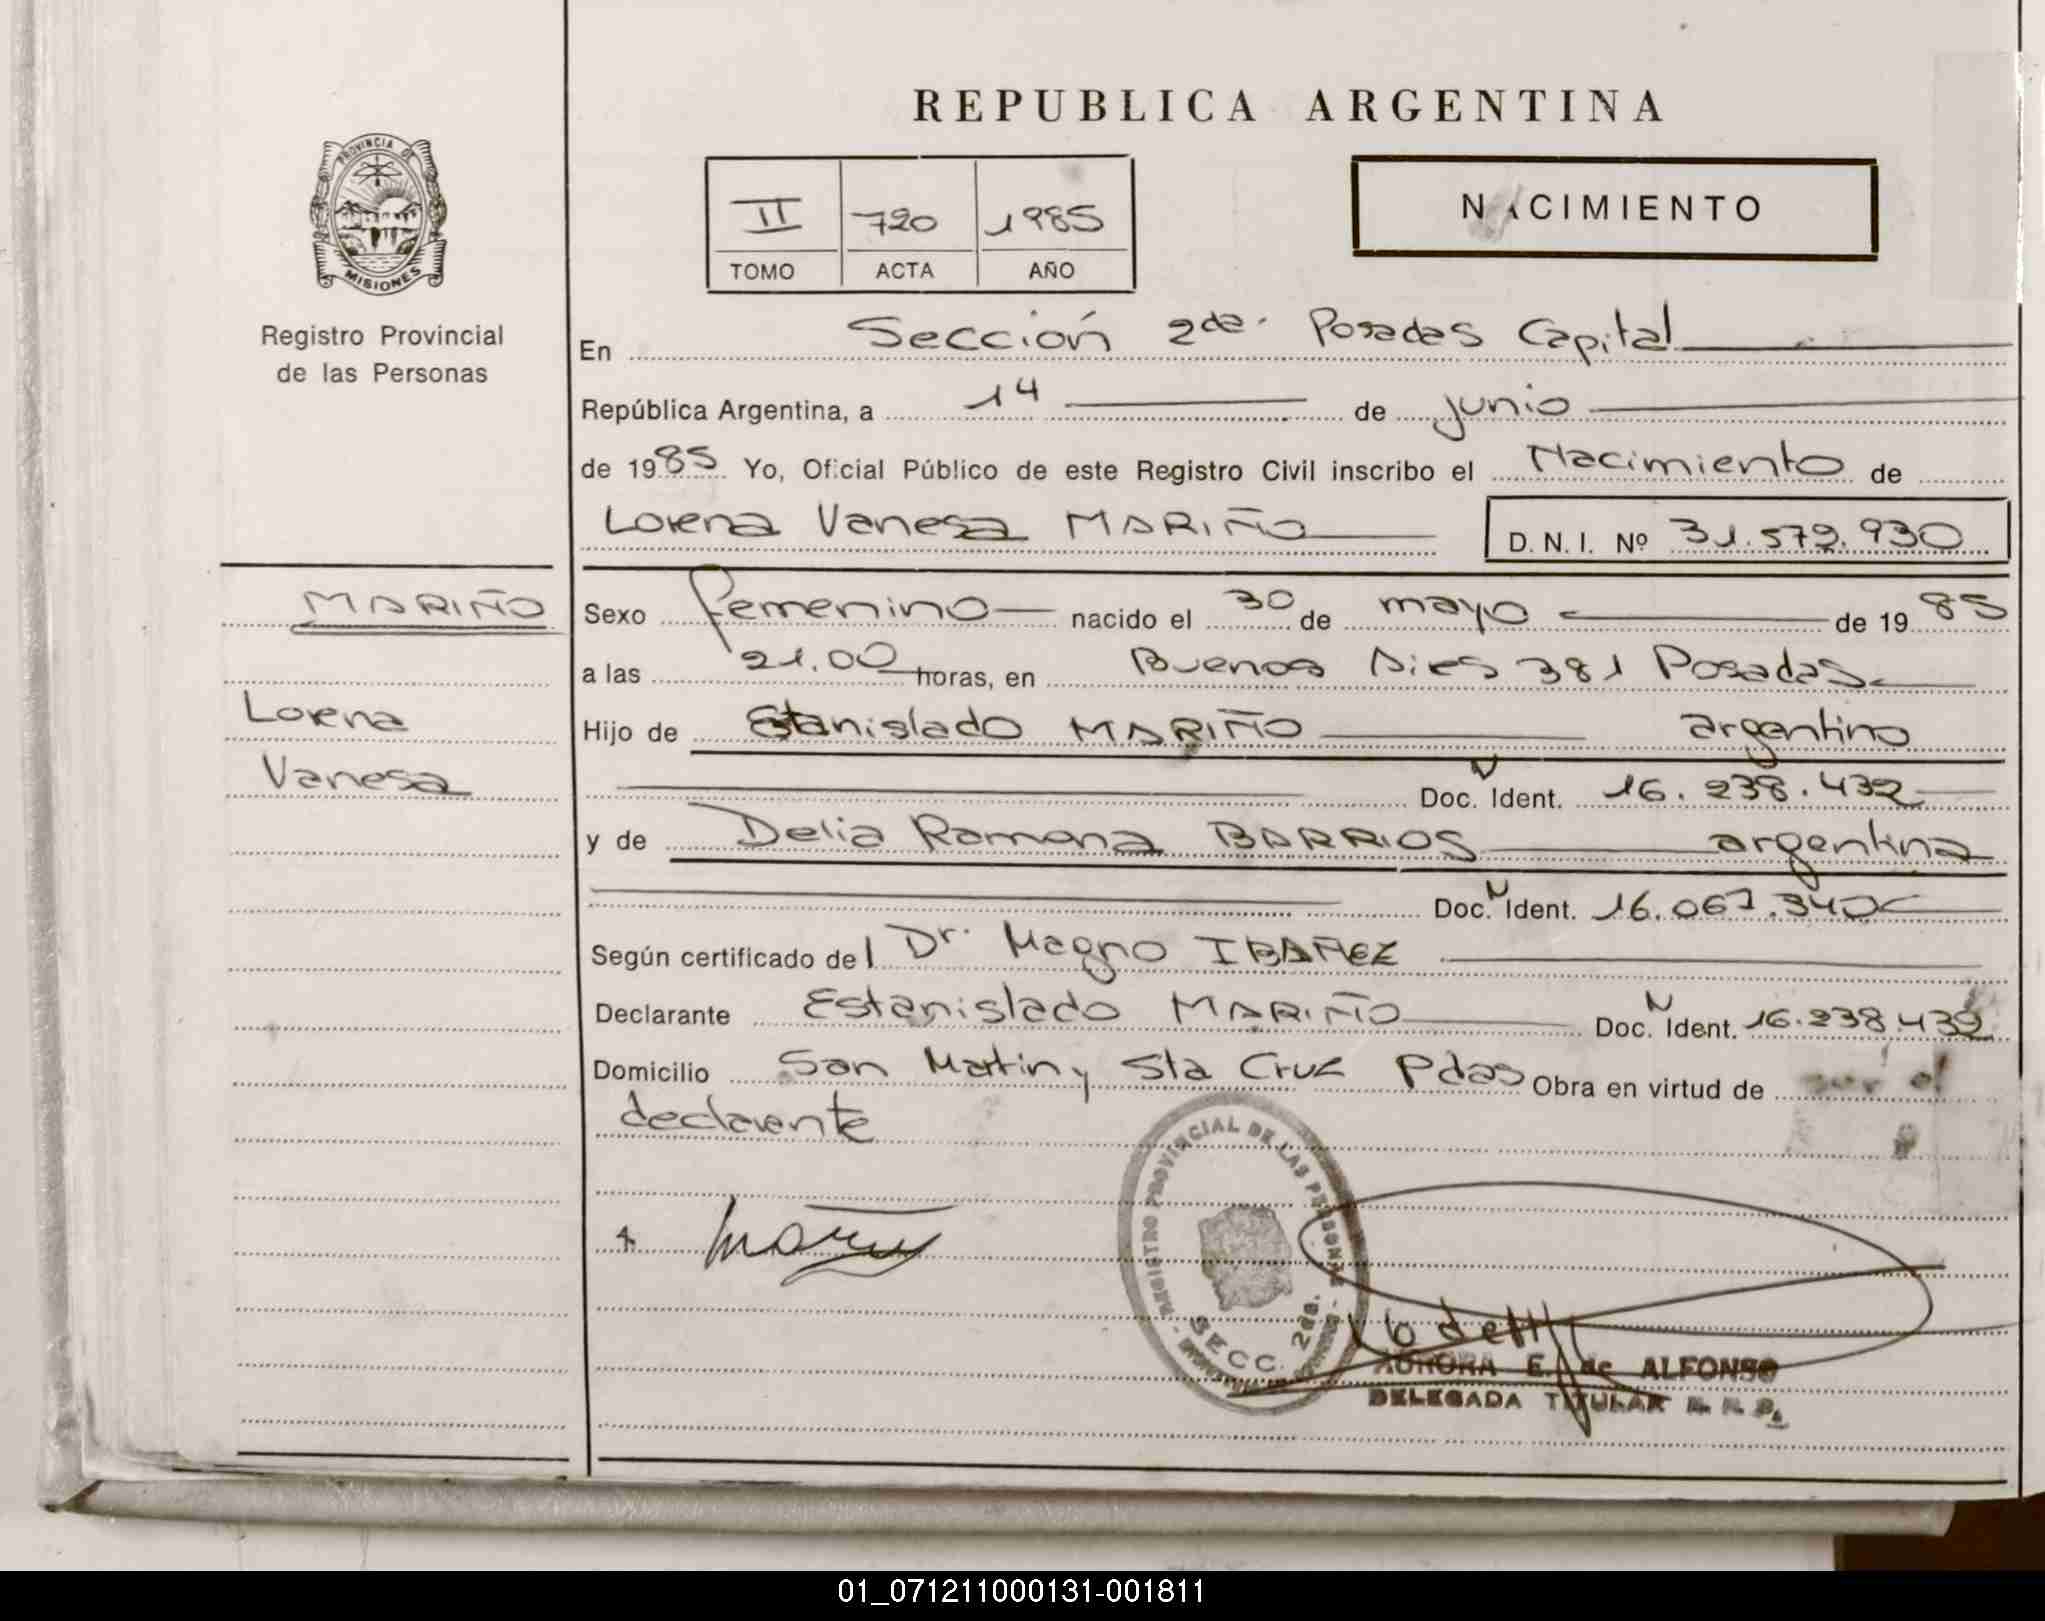 REPUBLICA ARGENTINA
PROVINCIA DE
MISIONES
Registro Provincial
de las Personas
II 720 1985
TOMO ACTA AÑO
NACIMIENTO
En Sección 2da. Posadas Capital
República Argentina, a 14 de junio
de 1985 Yo, Oficial Público de este Registro Civil inscribo el Nacimiento de
Lorena Vanesa MARIÑO D. N. I. Nº 31.579.930
MARIÑO
Lorena
Vanesa
Sexo femenino nacido el 30 de mayo de 1985
a las 21.00 horas, en Buenos Aires 381 Posadas
Hijo de Estanislado MARIÑO argentino
Doc. Ident. 16.238.432
y de Delia Ramona BARRIOS argentina
Doc. Ident. 16.067.340
Según certificado del Dr. Magno IBAÑEZ
Declarante Estanislado MARIÑO Doc. Ident. 16.238.432
Domicilio San Martin y Sta Cruz Pdas Obra en virtud de ser el
declarente
REGISTRO PROVINCIAL DE LAS PERSONAS
SECC. 2da.
AURORA E. de ALFONSO
DELEGADA TITULAR
01_071211000131-001811